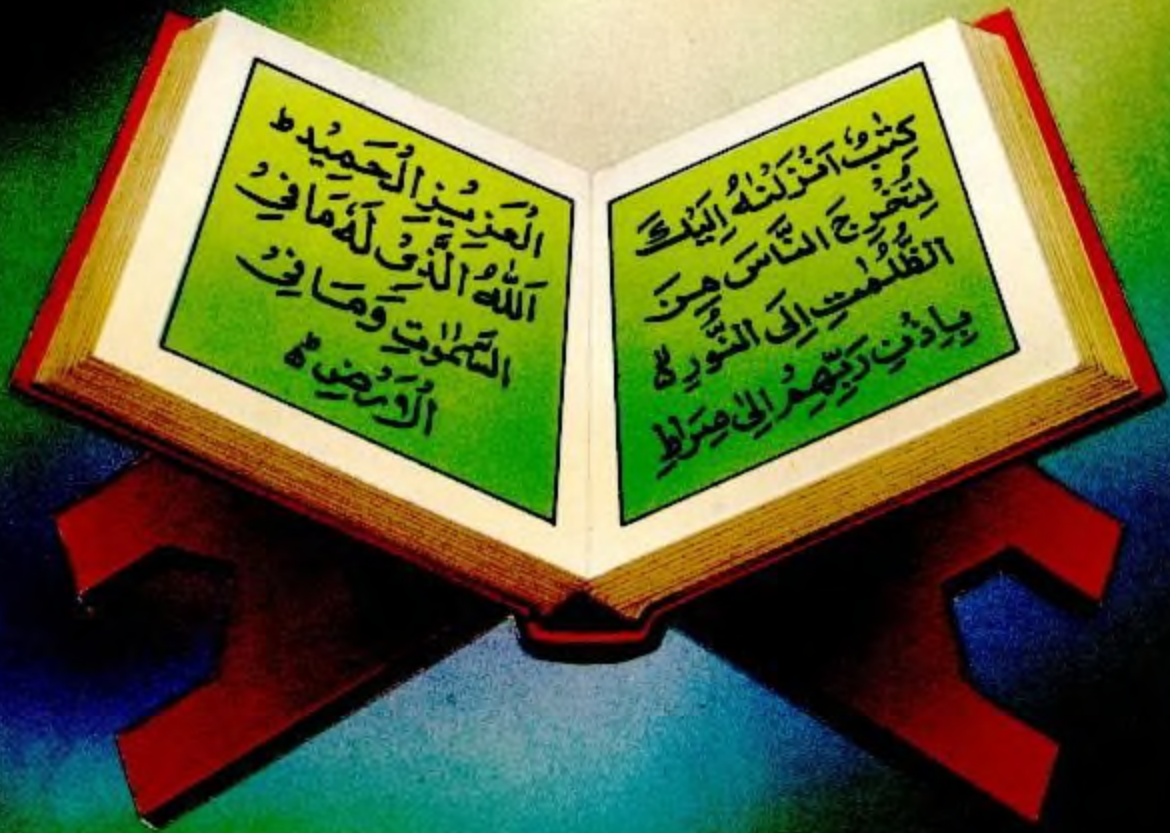 كِتٰبٌ اَنْزَلْنٰهُ اِلَيْكَ
لِتُخْرِجَ النَّاسَ مِنَ
الظُّلُمٰتِ اِلَى النُّوْرِ ۙ
بِاِذْنِ رَبِّهِمْ اِلٰى صِرَاطِ
الْعَزِيْزِ الْحَمِيْدِ ؕ
اللّٰهُ الَّذِيْ لَهٗ مَا فِيْ
السَّمٰوٰتِ وَمَا فِيْ
الْاَرْضِ ۙ